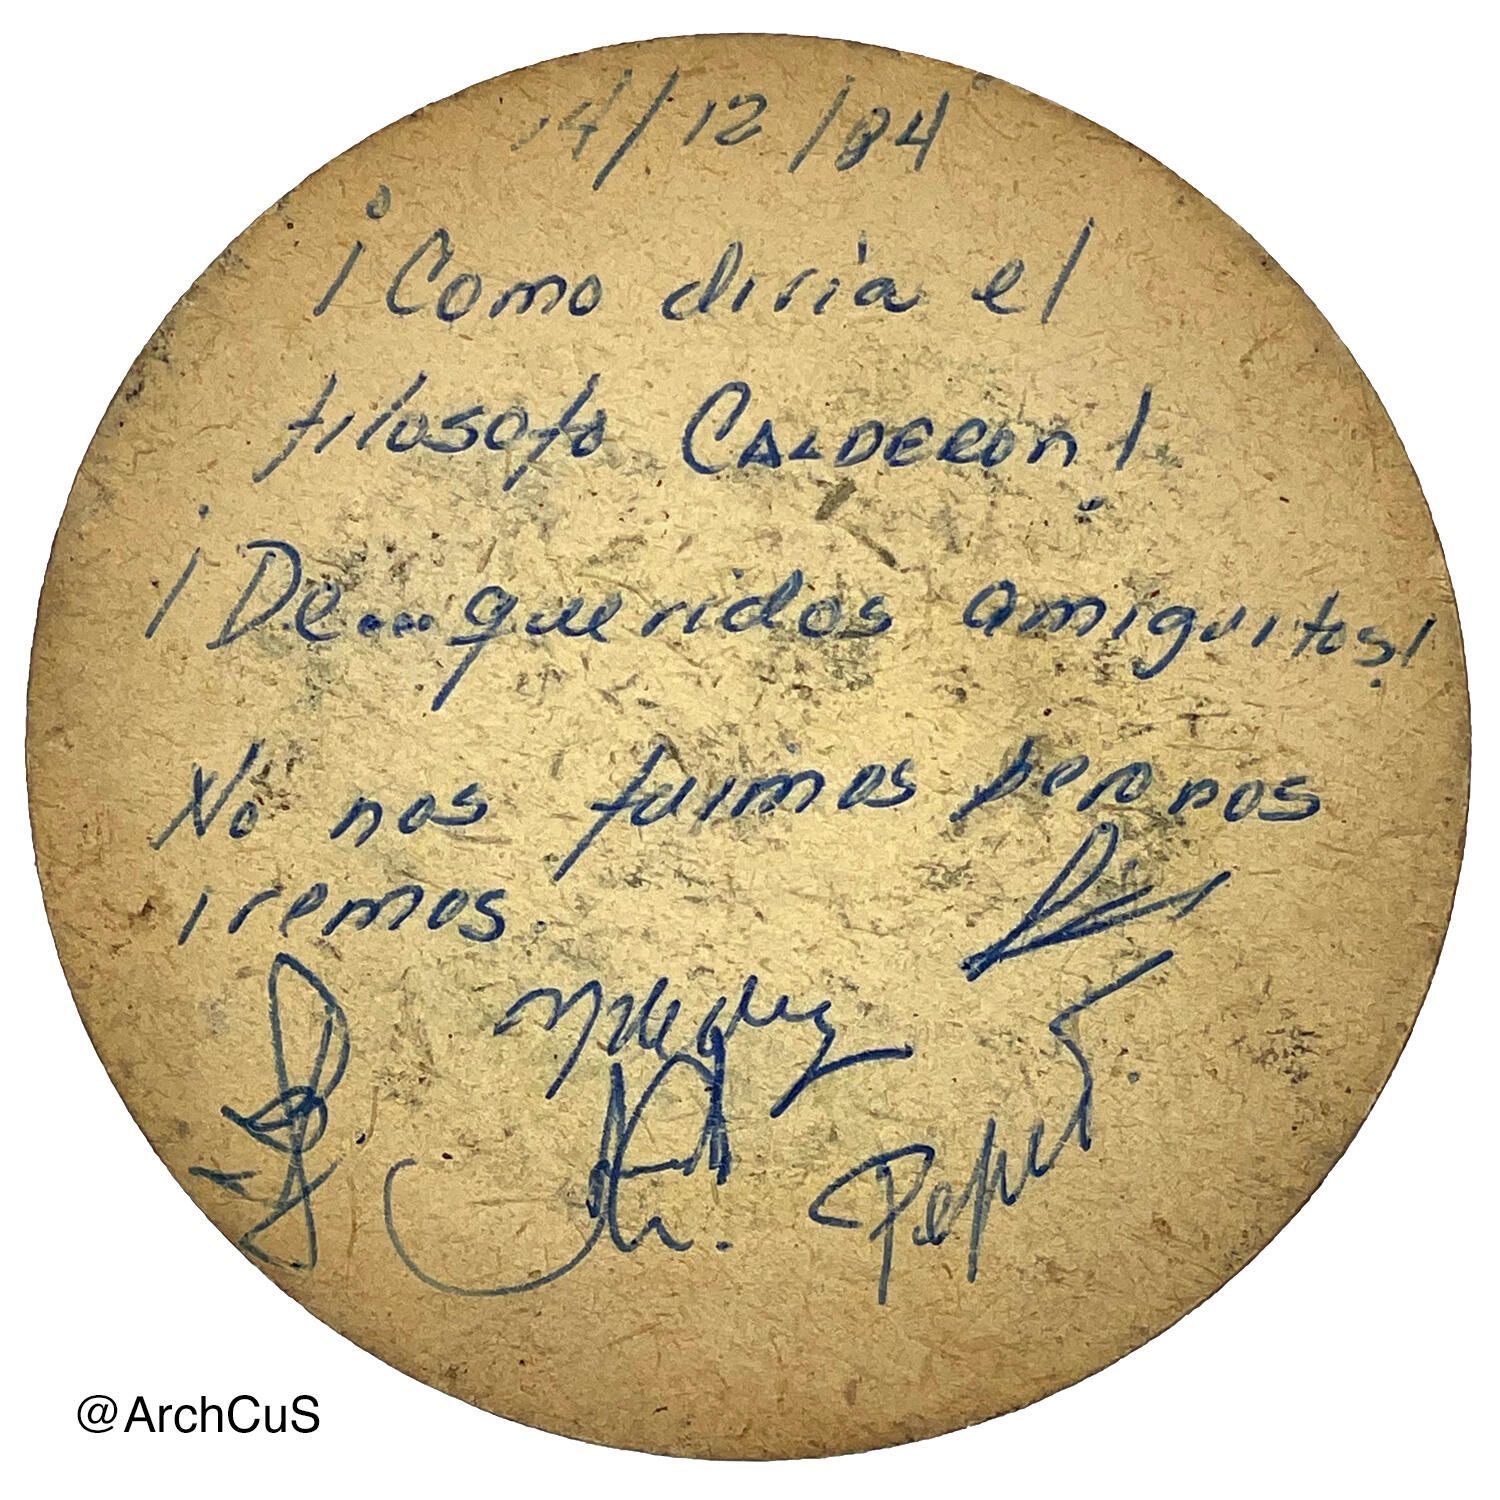 14/12/84
¡Como diría el
filosofo CALDERON!
¡De...queridos amiguitos!
No nos fuimos pero nos
iremos.
@ArchCuS